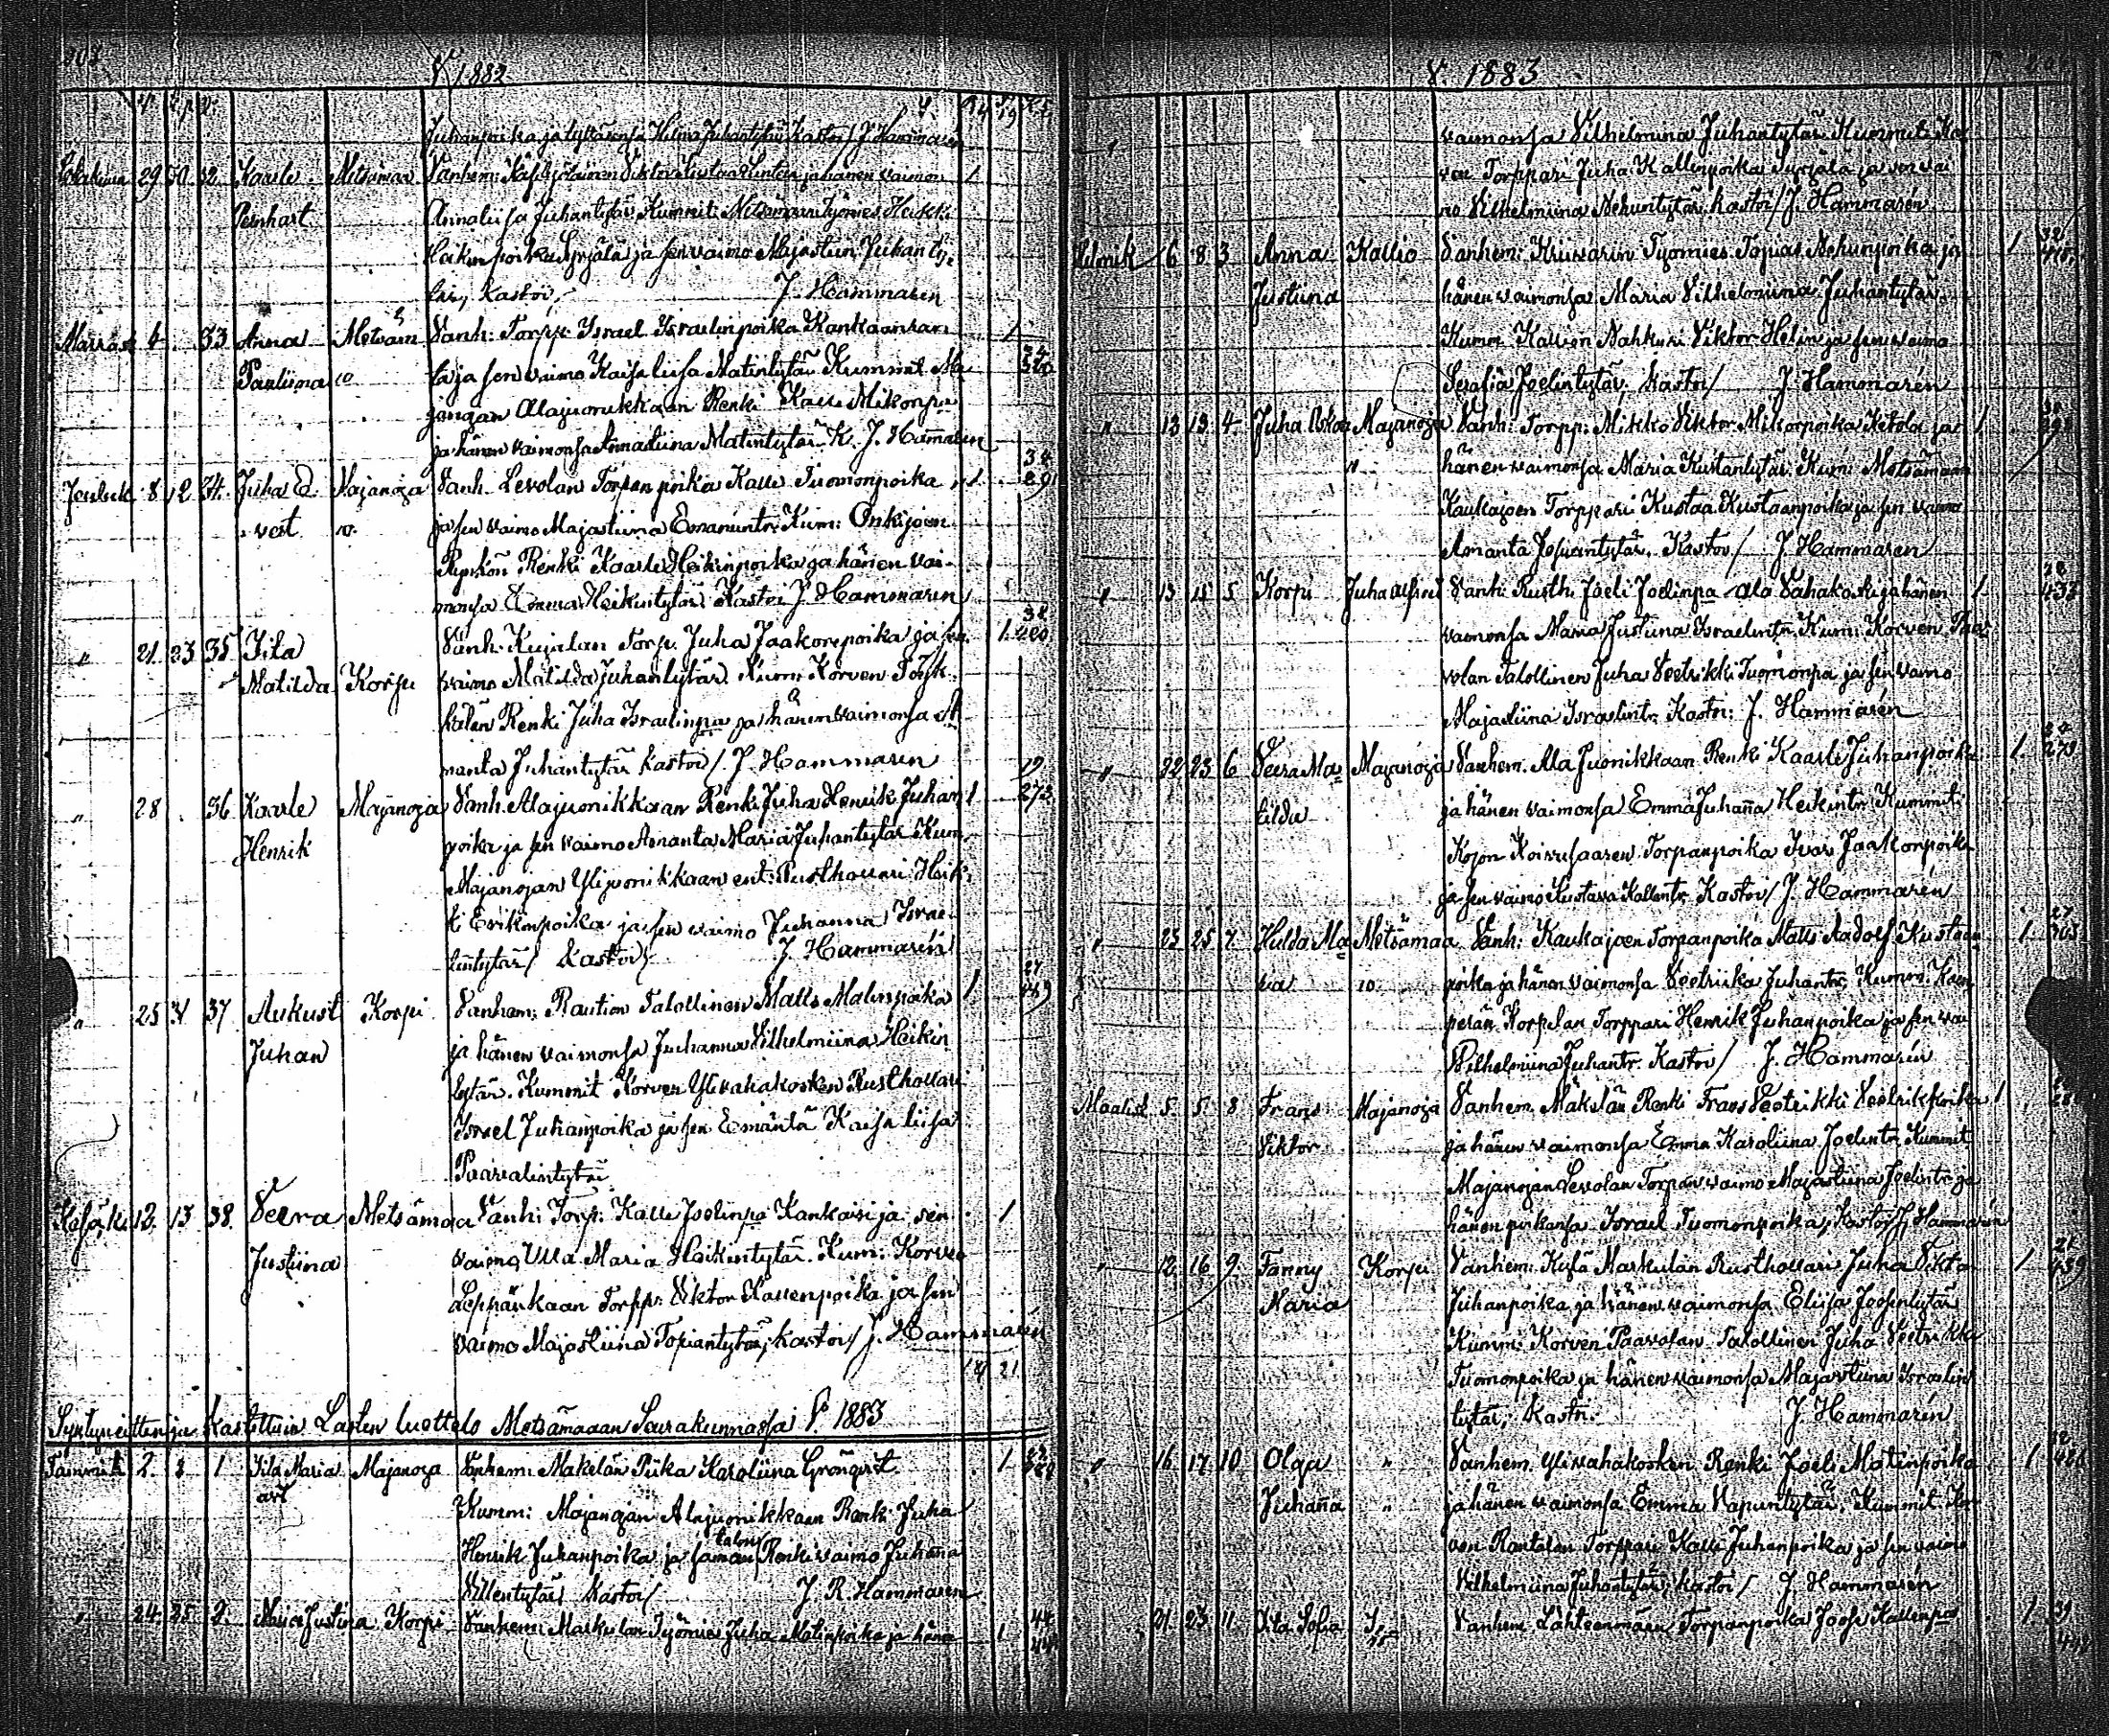 V 1882
Juhanpoika ja tyttärensä Hilma Juhantytär Kastoi / J. Hammarén
Lokakuun 29 30 32. Kaarle Metsämaa Vanhem: Käsityöläinen Viktor Kustaa Linten ja hänen vaimon 1
Pernhart Annaliisa Juhantytär Kummit: Metsämaan Työmies Heikki
Heikinpoika Syrjälä ja sen vaimo Majastiin Juhanty-
tär, Kastoi, J. Hammarén
Marrask 4 33 Anna Metsäm Vanh. Torpp. Israel Israelinpoika Kankaanran 1
Pauliina a ta ja sen vaimo Kaisa liisa Matintytär Kummit Ma
janojan Alajuonikkaan Renki Kalle Mikonpa
ja hänen vaimonsa Annastiina Matintytär K. J. Hammarén
Jouluk 8 12 34. Juha Ed Majanoja Vanh. Levolan Torpan poika Kalle Tuomonpoika 1
vest ja sen vaimo Majastiina Emanuintr. Kum: Onkijoen
Renki Kaarle Heikinpoika ja hänen vai-
monsa Emma Heikintytär Kastoi J. Hammarén
" 21. 23 35 Iita Vanh. Kujalan Torp. Juha Jaakonpoika ja sen 1.
Matilda Korpi vaimo Matilda Juhantytär. Kum: Korven Pöyk-
kälän Renki Juha Israelinpa ja hänen vaimonsa A
manta Juhantytär Kastoi / J. Hammarén
" 28 36 Kaarle Majanoja Vanh. Alajuonikkaan Renki Juha Henrik Juhan 1 273
Henrik poika ja sen vaimo Amanta Maria Juhantytär Kum.
Majanojan Ylijuonikkaan ent. Rusthollari Heik-
ki Erikinpoika ja sen vaimo Juhanna Israe-
lintytär / Kastoi / J. Hammarén
" 25 31 37 Aukust Korpi Vanhem: Raution Talollinen Matts Matinpoika 1
Juhan ja hänen vaimonsa Juhanna Vilhelmiina Heikin
tytär. Kummit Korven Ylivahakosken Rusthollari
Israel Juhanpoika ja sen Emäntä Kaisa liisa
Paavalintytär
Kesäk: 12. 13 38. Veera Metsämaa Vanh: Torp: Kalle Joelinpa Kankaisi ja sen 1
Justiina vaimo Ulla Maria Heikintytär. Kum: Korven
Leppänkaan Torpp. Viktor Kallenpoika ja sen
vaimo Majastiina Topiantytär, kastoi / J. Hammarén
21
Syntyneitten ja Kastettuin Lasten luettelo Metsämaan Seurakunnassa V. 1883
Tammik 2. 3 1 Iida Maria Majanoja Vanhem: Mäkelän Piika Karoliina Grönqvist 1
Kumm: Majanojan Alajuonikkaan Renki Juha
Henrik Juhanpoika ja saman talon Renki vaimo Juhanna
Villentytär Kastoi / J. R. Hammarén
" 24. 25. 2. Maria Justiina Korpi Vanhem: Markulan Työmies Juha Matinpoika ja häne 1
V. 1883
vaimonsa Vilhelmina Juhantytär. Kummit: Kor
ven Torppari Juha Kallinpoika Syrjälä ja sen vai
mo Vilhelmiina Nehuntytär. Kastoi / J. Hammarén
Helmik 6 8 3 Anna Kallio Vanhem: Kriivarin Työmies Topias Nehunpoika ja 1
Justiina hänen vaimonsa Maria Vilhelmiina Juhantytär.
Kumm Kallion Nahkuri Viktor Helin ja sen vaimo
Serafia Joelintytär. Kastoi / J. Hammarén
" 13 13 4 Juha Oskar Majanoja Vanh: Torpp: Mikko Viktor Mikonpoika Ketola ja 1
hänen vaimonsa Maria Kustantytär Kum: Metsämaan
Kaukajoen Torppari Kustaa Kustaanpoika ja sen vaimo
Amanta Josuantytär. Kastoi / J. Hammarén
" 13 15 5 Korpi Juha Alfred Vanh: Rusth. Joeli Joelinpa Ala Vahakoski ja hänen 1
vaimonsa Maria Justiina Israelintr. Kum: Korven Paa-
volan Talollinen Juha Veetrikki Tuomonpa ja sen vaimo
Majastiina Israelintr. Kastoi: J. Hammarén
" 22 23 6 Veera Ma- Majanoja Vanhem. Ala Juonikkaan Renki Kaarle Juhanpoika 1. 273
tilda ja hänen vaimonsa Emma Juhanna Heikintr. Kummit:
Kojon Koivusaaren Torpanpoika Ivar Jaakonpoika
ja sen vaimo Kustava Kallentr. Kastoi / J. Hammarén
" 25 25 7. Hulda Ma- Metsämaa Vanh: Kaukajoen Torpanpoika Matts Aadolf Kustaan 1.
ria poika ja hänen vaimonsa Veetriika Juhantr. Kumm. Kan
perän Korpelan Torppari Henrik Juhanpoika ja sen vai
Vilhelmiina Juhantr. Kastoi / J. Hammarén
Maalisk. 5. 5. 8 Frans Majanoja Vanhem. Mäkelän Renki Frans Veetrikki Veetrikinpoika 1
Viktor ja hänen vaimonsa Emma Karoliina Joelintr. Kummit
Majanojan Levolan Torpan vaimo Majastiina Joelintr ja
hänen poikansa Israel Tuomonpoika, Kastoi J. Hammarén
" 12. 16. 9. Fanny Korpi Vanhem: Kylä Markulan Rusthollari Juha Viktor 1
Maria Juhanpoika ja hänen vaimonsa Eliisa Joosentytär
Kumm: Korven Paavolan Talollinen Juha Veetrikki
Tuomonpoika ja hänen vaimonsa Majastiina Israelin
tytär, Kastoi. J. Hammarén
" 16 17 10. Olga " Vanhem. Ylivahakosken Renki Joeli Matinpoika 1
Juhanna " ja hänen vaimonsa Emma Vapuntytär. Kummit. Kor-
ven Rantalan Torppari Kalle Juhanpoika ja sen vaimo
Vilhelmiina Juhantytär, kastoi / J. Hammarén
21. 23 11. Iita Sofia Vanhem Lähteenmäen Torpanpoika Joose Kallenpoi 1.